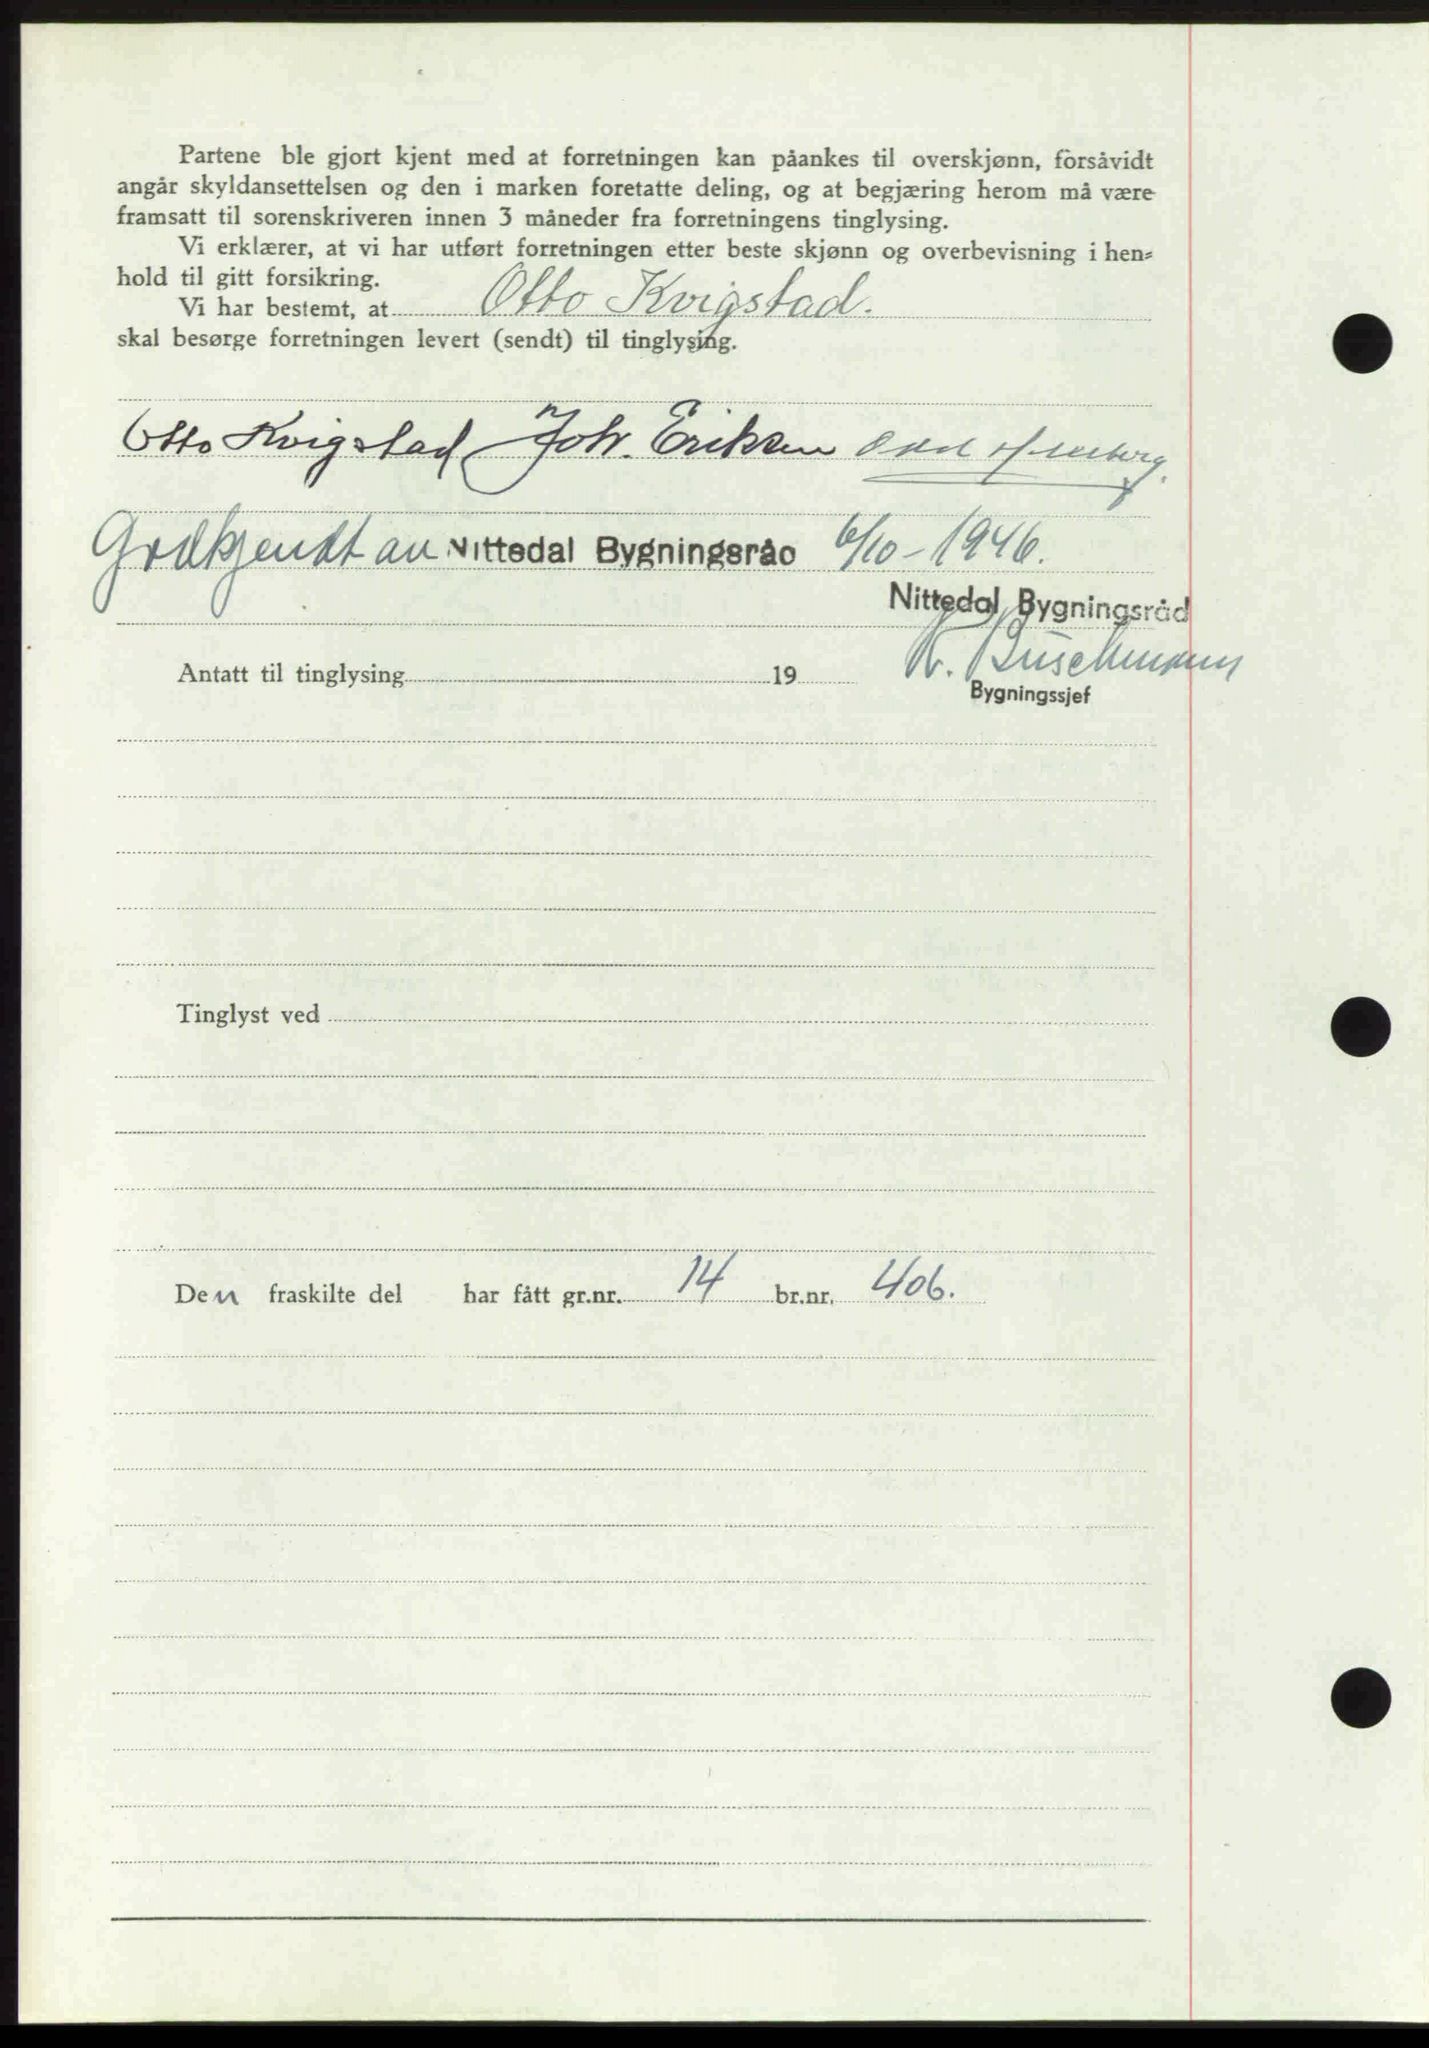 Partene ble gjort kjent med at forretningen kan påankes til overskjønn, forsåvidt
angår skyldansettelsen og den i marken foretatte deling, og at begjæring herom må være
framsatt til sorenskriveren innen 3 måneder fra forretningens tinglysing.
Vi erklærer, at vi har utført forretningen etter beste skjønn og overbevisning i hen-
hold til gitt forsikring.
Vi har bestemt, at Otto Kvigstad.
skal besørge forretningen levert (sendt) til tinglysing.
Otto Kvigstad Joh. Eriksen
Godkjendt av Nittedal Bygningsråd 6/10-1946.
Nittedal Bygningsråd
Buschmann
Antatt til tinglysing 19
Bygningssjef
Tinglyst ved
Den fraskilte del har fått gr.nr. 14 br.nr. 406.